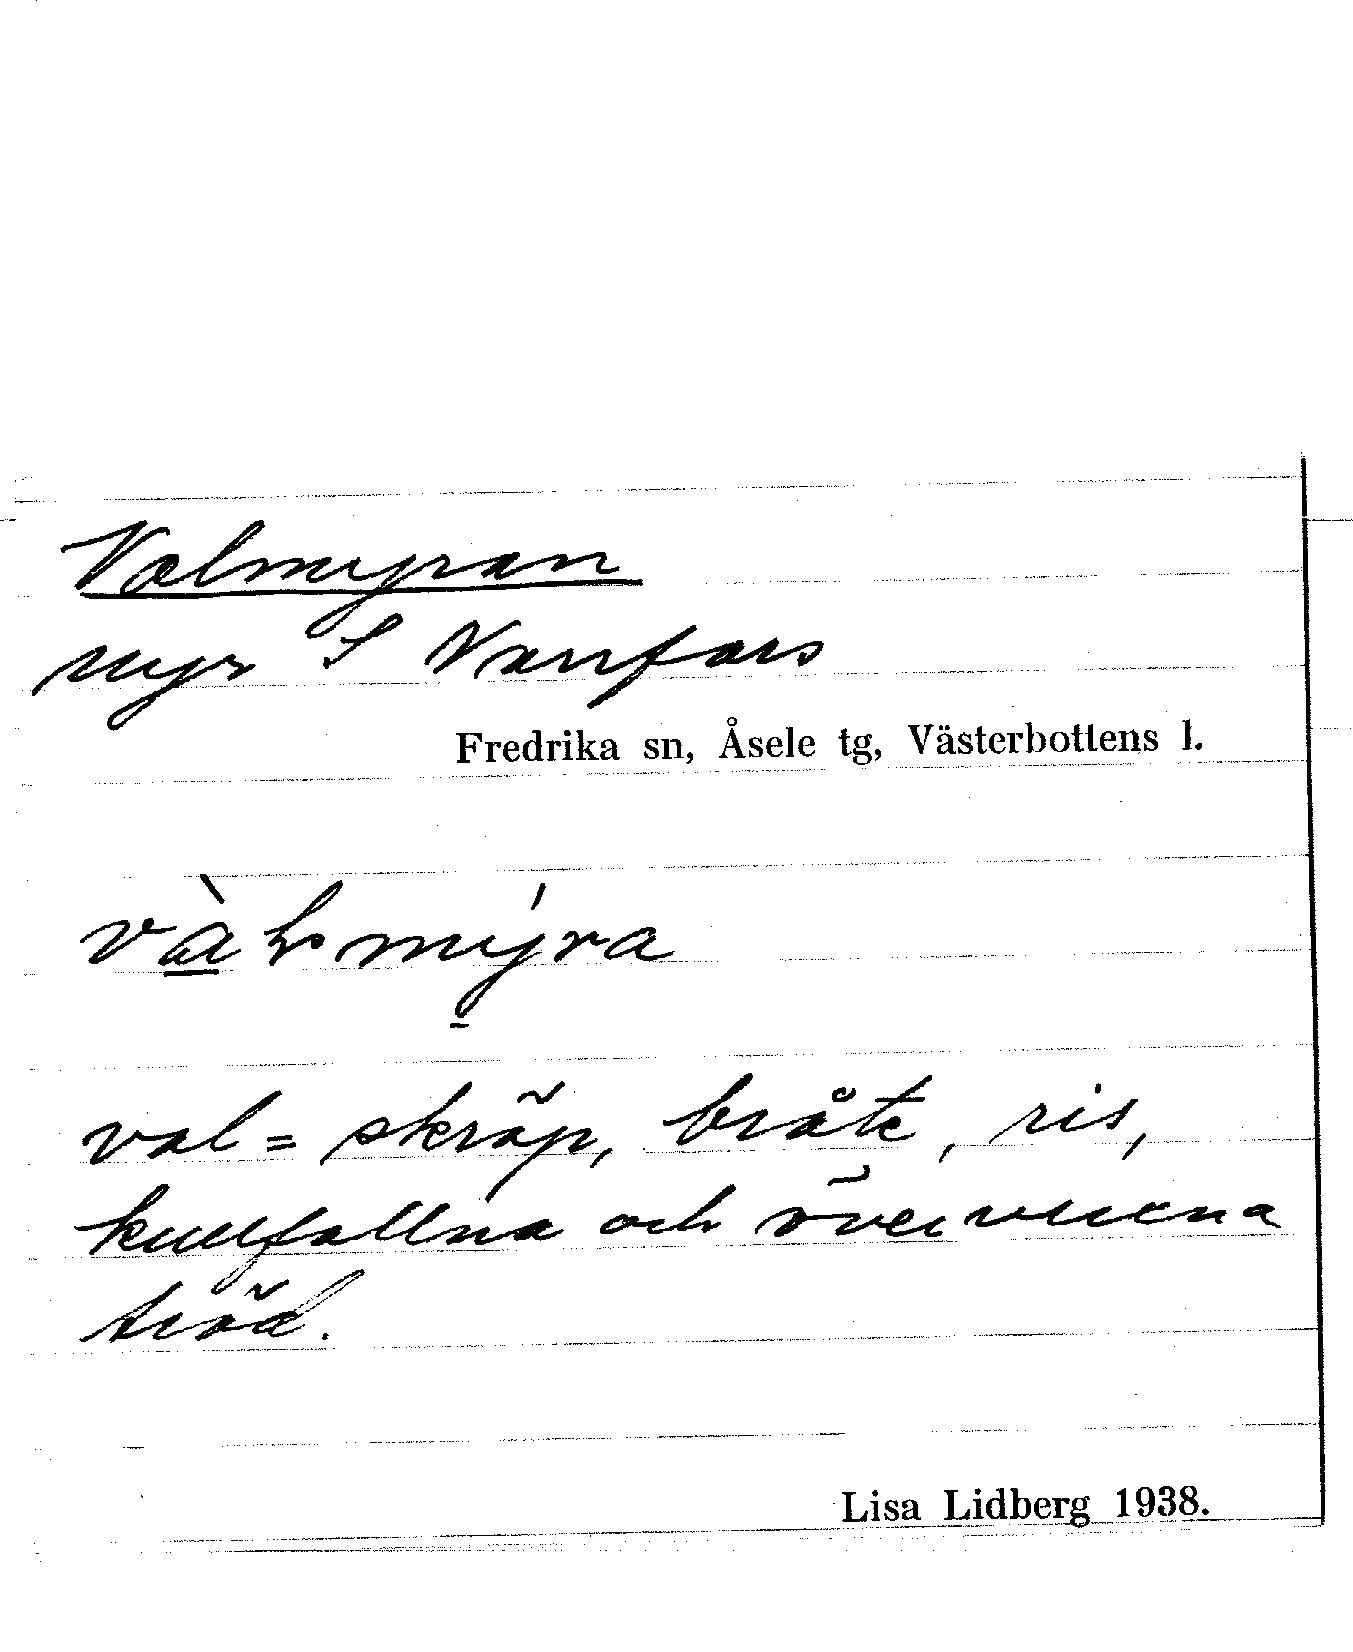 Valmyran
myr S Varrfors
Fredrika sn, Åsele tg, Västerbottens l.
val = skräp, bråte, ris,
kullfallna och övervuxna
träd.
Lisa Lidberg 1938.